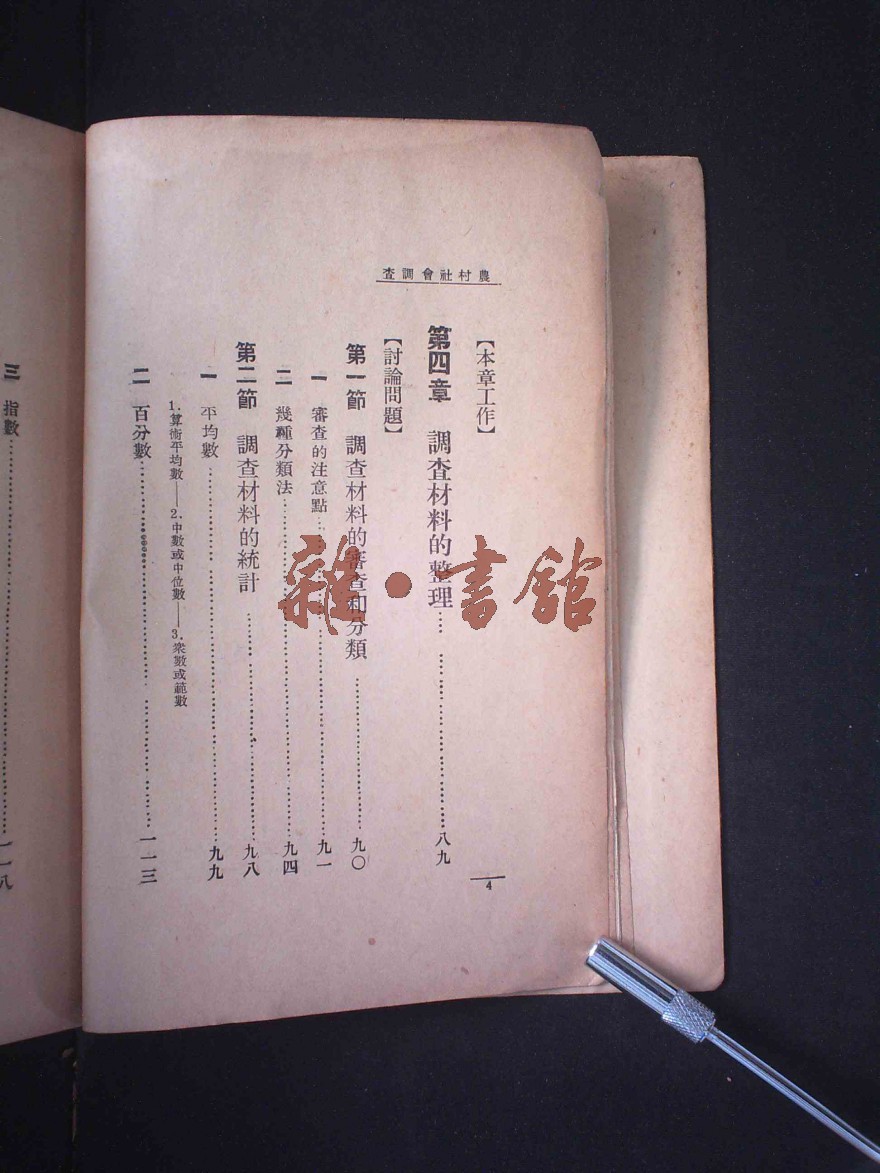 農村社會調查
【本章工作】
第四章 調查材料的整理……………………八九
【討論問題】
第一節 調查材料的審查和分類……………………九〇
一 審查的注意點……………………九一
二 幾種分類法……………………九四
第二節 調查材料的統計……………………九八
一 平均數……………………九九
1.算術平均數——2.中數或中位數——3.衆數或範數
二 百分數……………………一一三
4
三 指數……………………一一八
雜·書館